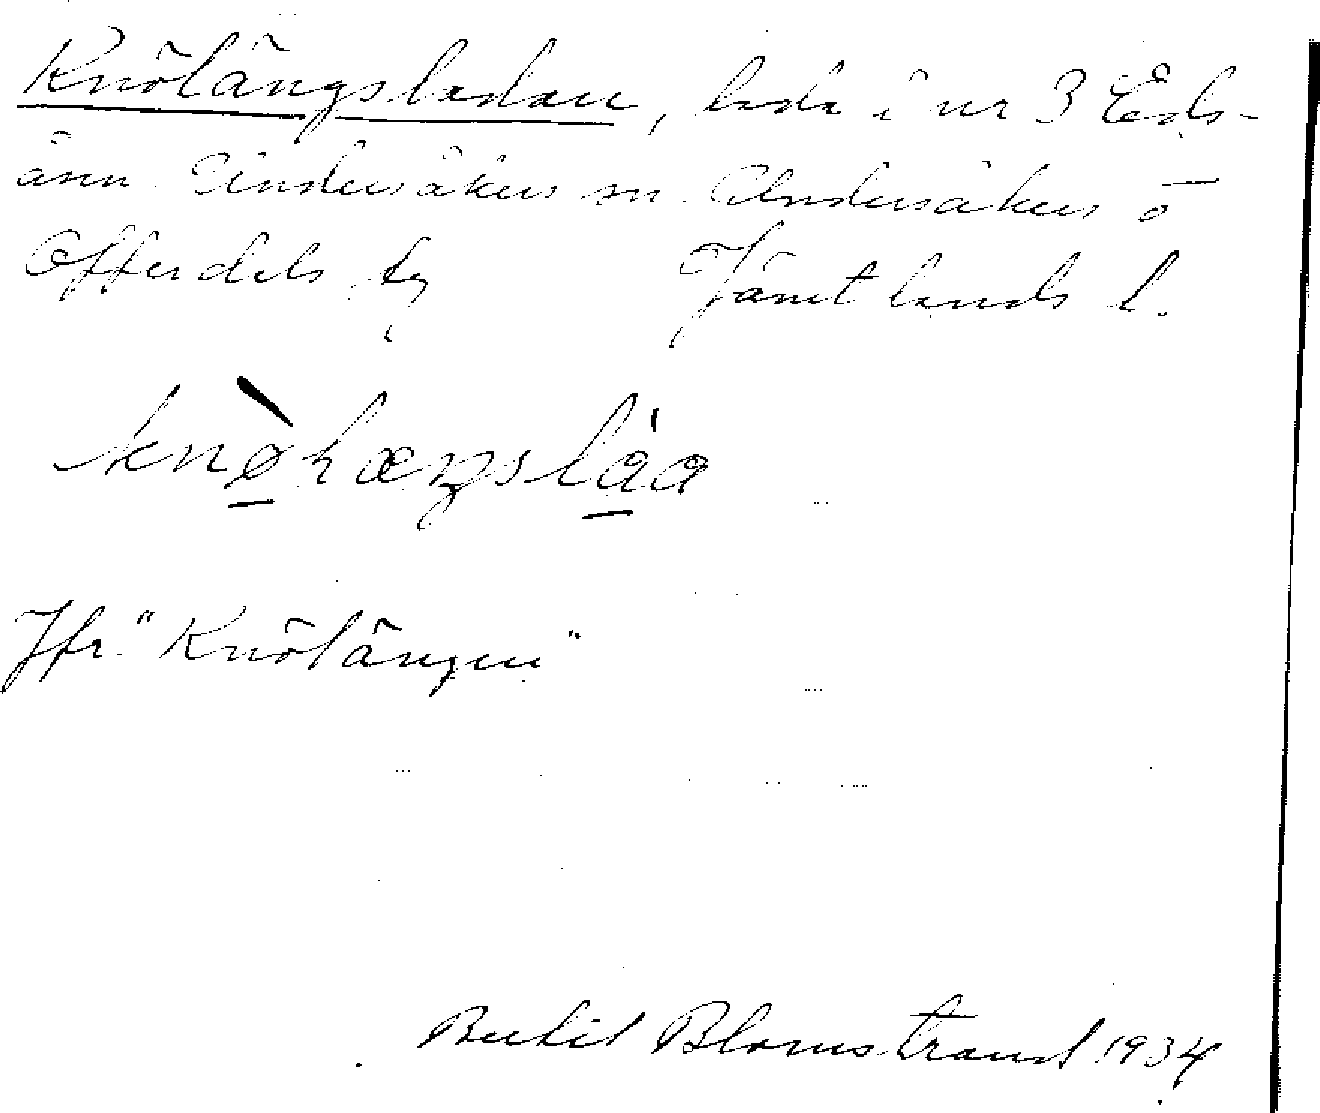 Knölängsladan, lada i nr 3 Eds-
änn Undersåkers sn. Undersåkers o
Offerdals tg Jämtlands l.
knø̀læŋsláa
Jfr. "Knölängen"
Bertil Blomstrand 1934